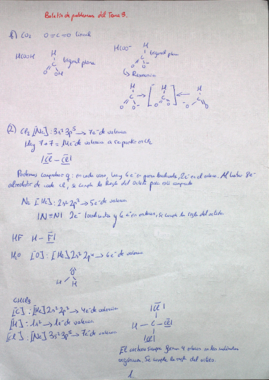 Boletín de problemas del Tema 9.
1) CO₂ O=C=O lineal
HCOOH H C O OH trigonal plana
HCOO⁻ H C O O trigonal plana
↳ Resonancia
(2) Cl₂ [Ne] 3s² 3p⁵ → 7e⁻ de valencia
Hay 7+7 = 14e⁻ de valencia a repartir
|Cl — Cl|
Podemos comprobar q: en cada caso, hay 6e⁻ no y 2e⁻ en el enlace. Al haber 8e⁻
alrededor de cada Cl, se cumple la regla del octeto para ese compuesto
N₂ [He] 2s² 2p³ → 5e⁻ de valencia
|N≡N| 2e⁻ y 6e⁻ en enlaces, se cumple la regla del octeto.
HF H—F|
H₂O [O]: [He] 2s² 2p⁴ → 6e⁻ de valencia
H O H
CHCl₃
[C]: [He] 2s² 2p² → 4e⁻ de valencia
[H]: 1s¹ → 1e⁻ de valencia
[Cl]: [Ne] 3s² 3p⁵ → 7e⁻ de valencia
|Cl|
H — C — Cl|
|Cl|
El carbono siempre forma 4 enlaces en las moléculas
orgánicas. Se cumple la regla del octeto.
1